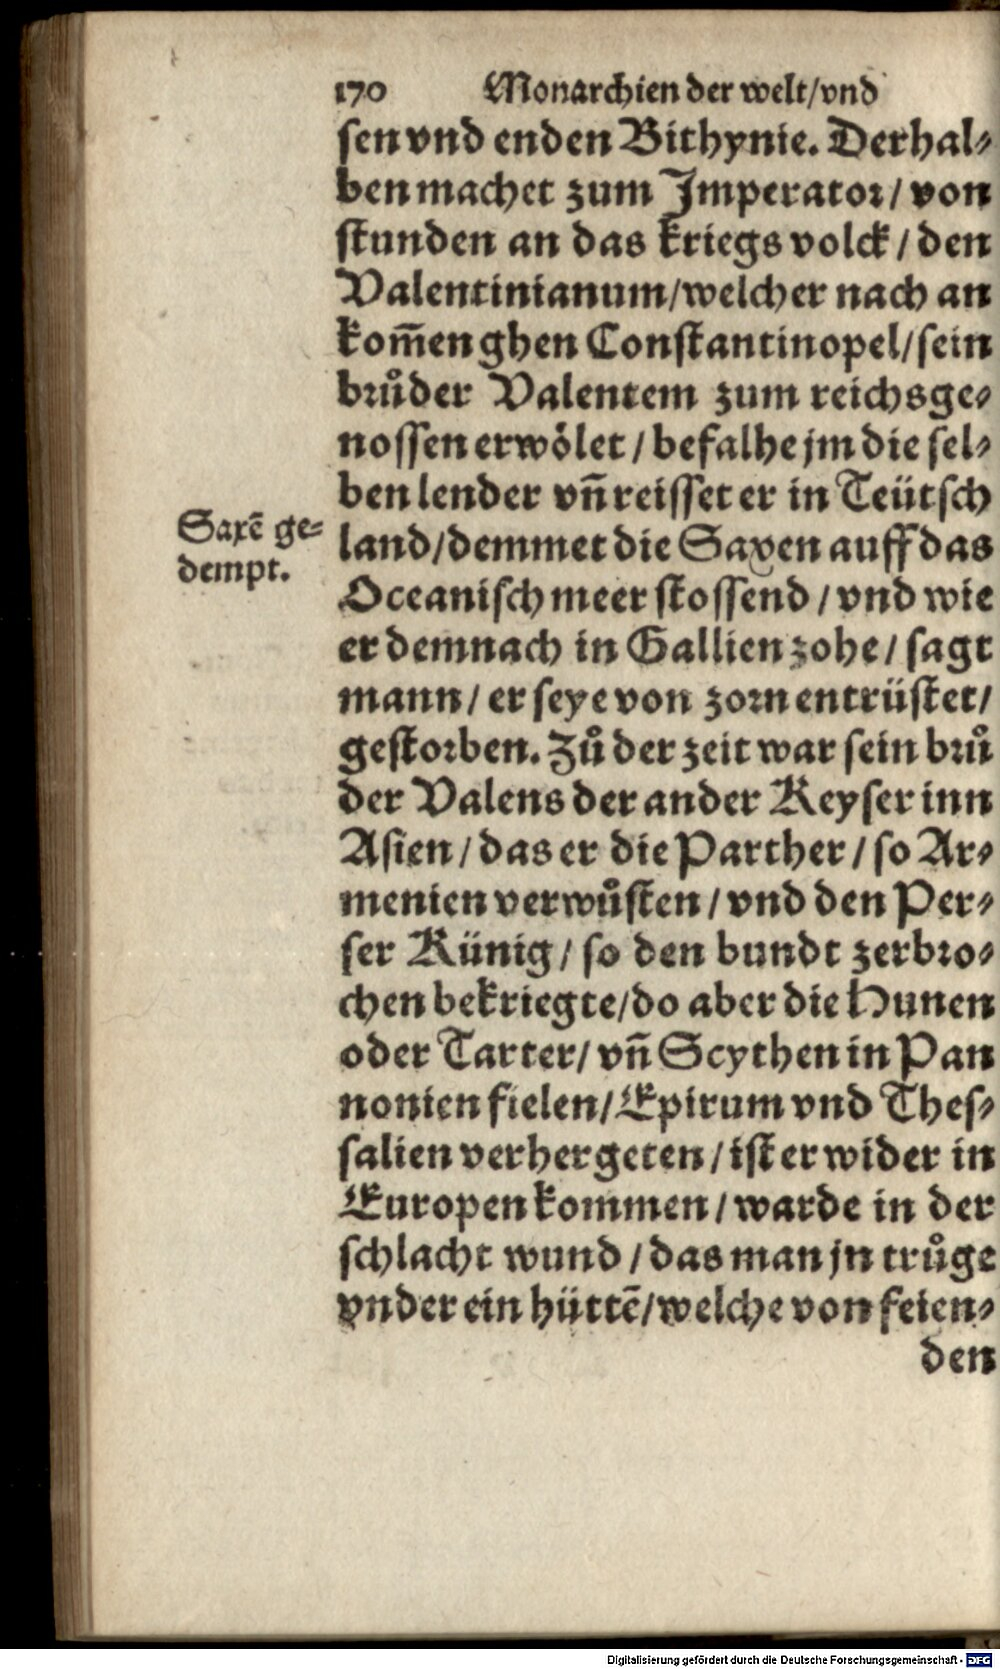 170 Monarchien der welt/vnd
sen vnd enden Bithynie. Derhal⸗
ben machet zum Imperator/ von
stunden an das kriegs volck/ den
Valentinianum/welcher nach an
kom̃en ghen Constantinopel/sein
brůder Valentem zum reichsge⸗
nossen erwölet/ befalhe jm die sel⸗
ben lender vñ reisset er in Teütsch
Saxẽ ge⸗
dempt.
land/demmet die Saxen auff das
Oceanisch meer stossend/ vnd wie
er demnach in Gallien zohe/ sagt
mann/ er seye von zorn entrüstet/
gestorben. Zů der zeit war sein brů
der Valens der ander Keyser inn
Asien/ das er die Parther/ so Ar⸗
menien verwůsten/ vnd den Per⸗
ser Künig/ so den bundt zerbro⸗
chen bekriegte/do aber die Hunen
oder Tarter/ vñ Scythen in Pan
nonien fielen/Epirum vnd Thes⸗
salien verhergeten/ ist er wider in
Europen kommen/ warde in der
schlacht wund/ das man jn trůge
vnder ein hüttẽ/welche von feien⸗
den
Digitalisierung gefördert durch die Deutsche Forschungsgemeinschaft - DFG